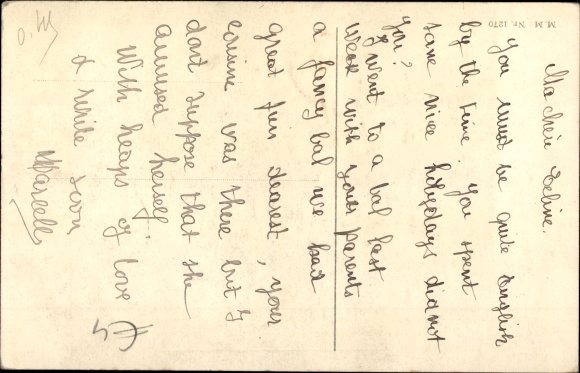 Ma chère Eveline.
you must be quite English
by the time. you spent
some nice holydays did not
you?
I went to a bal last
week with your parents
a fancy bal we had
great fun dearest, your
cousine was there but I
dont suppose that she
amused herself.
With heaps of love
& write soon
Marcelle
M. M. Nr. 1270